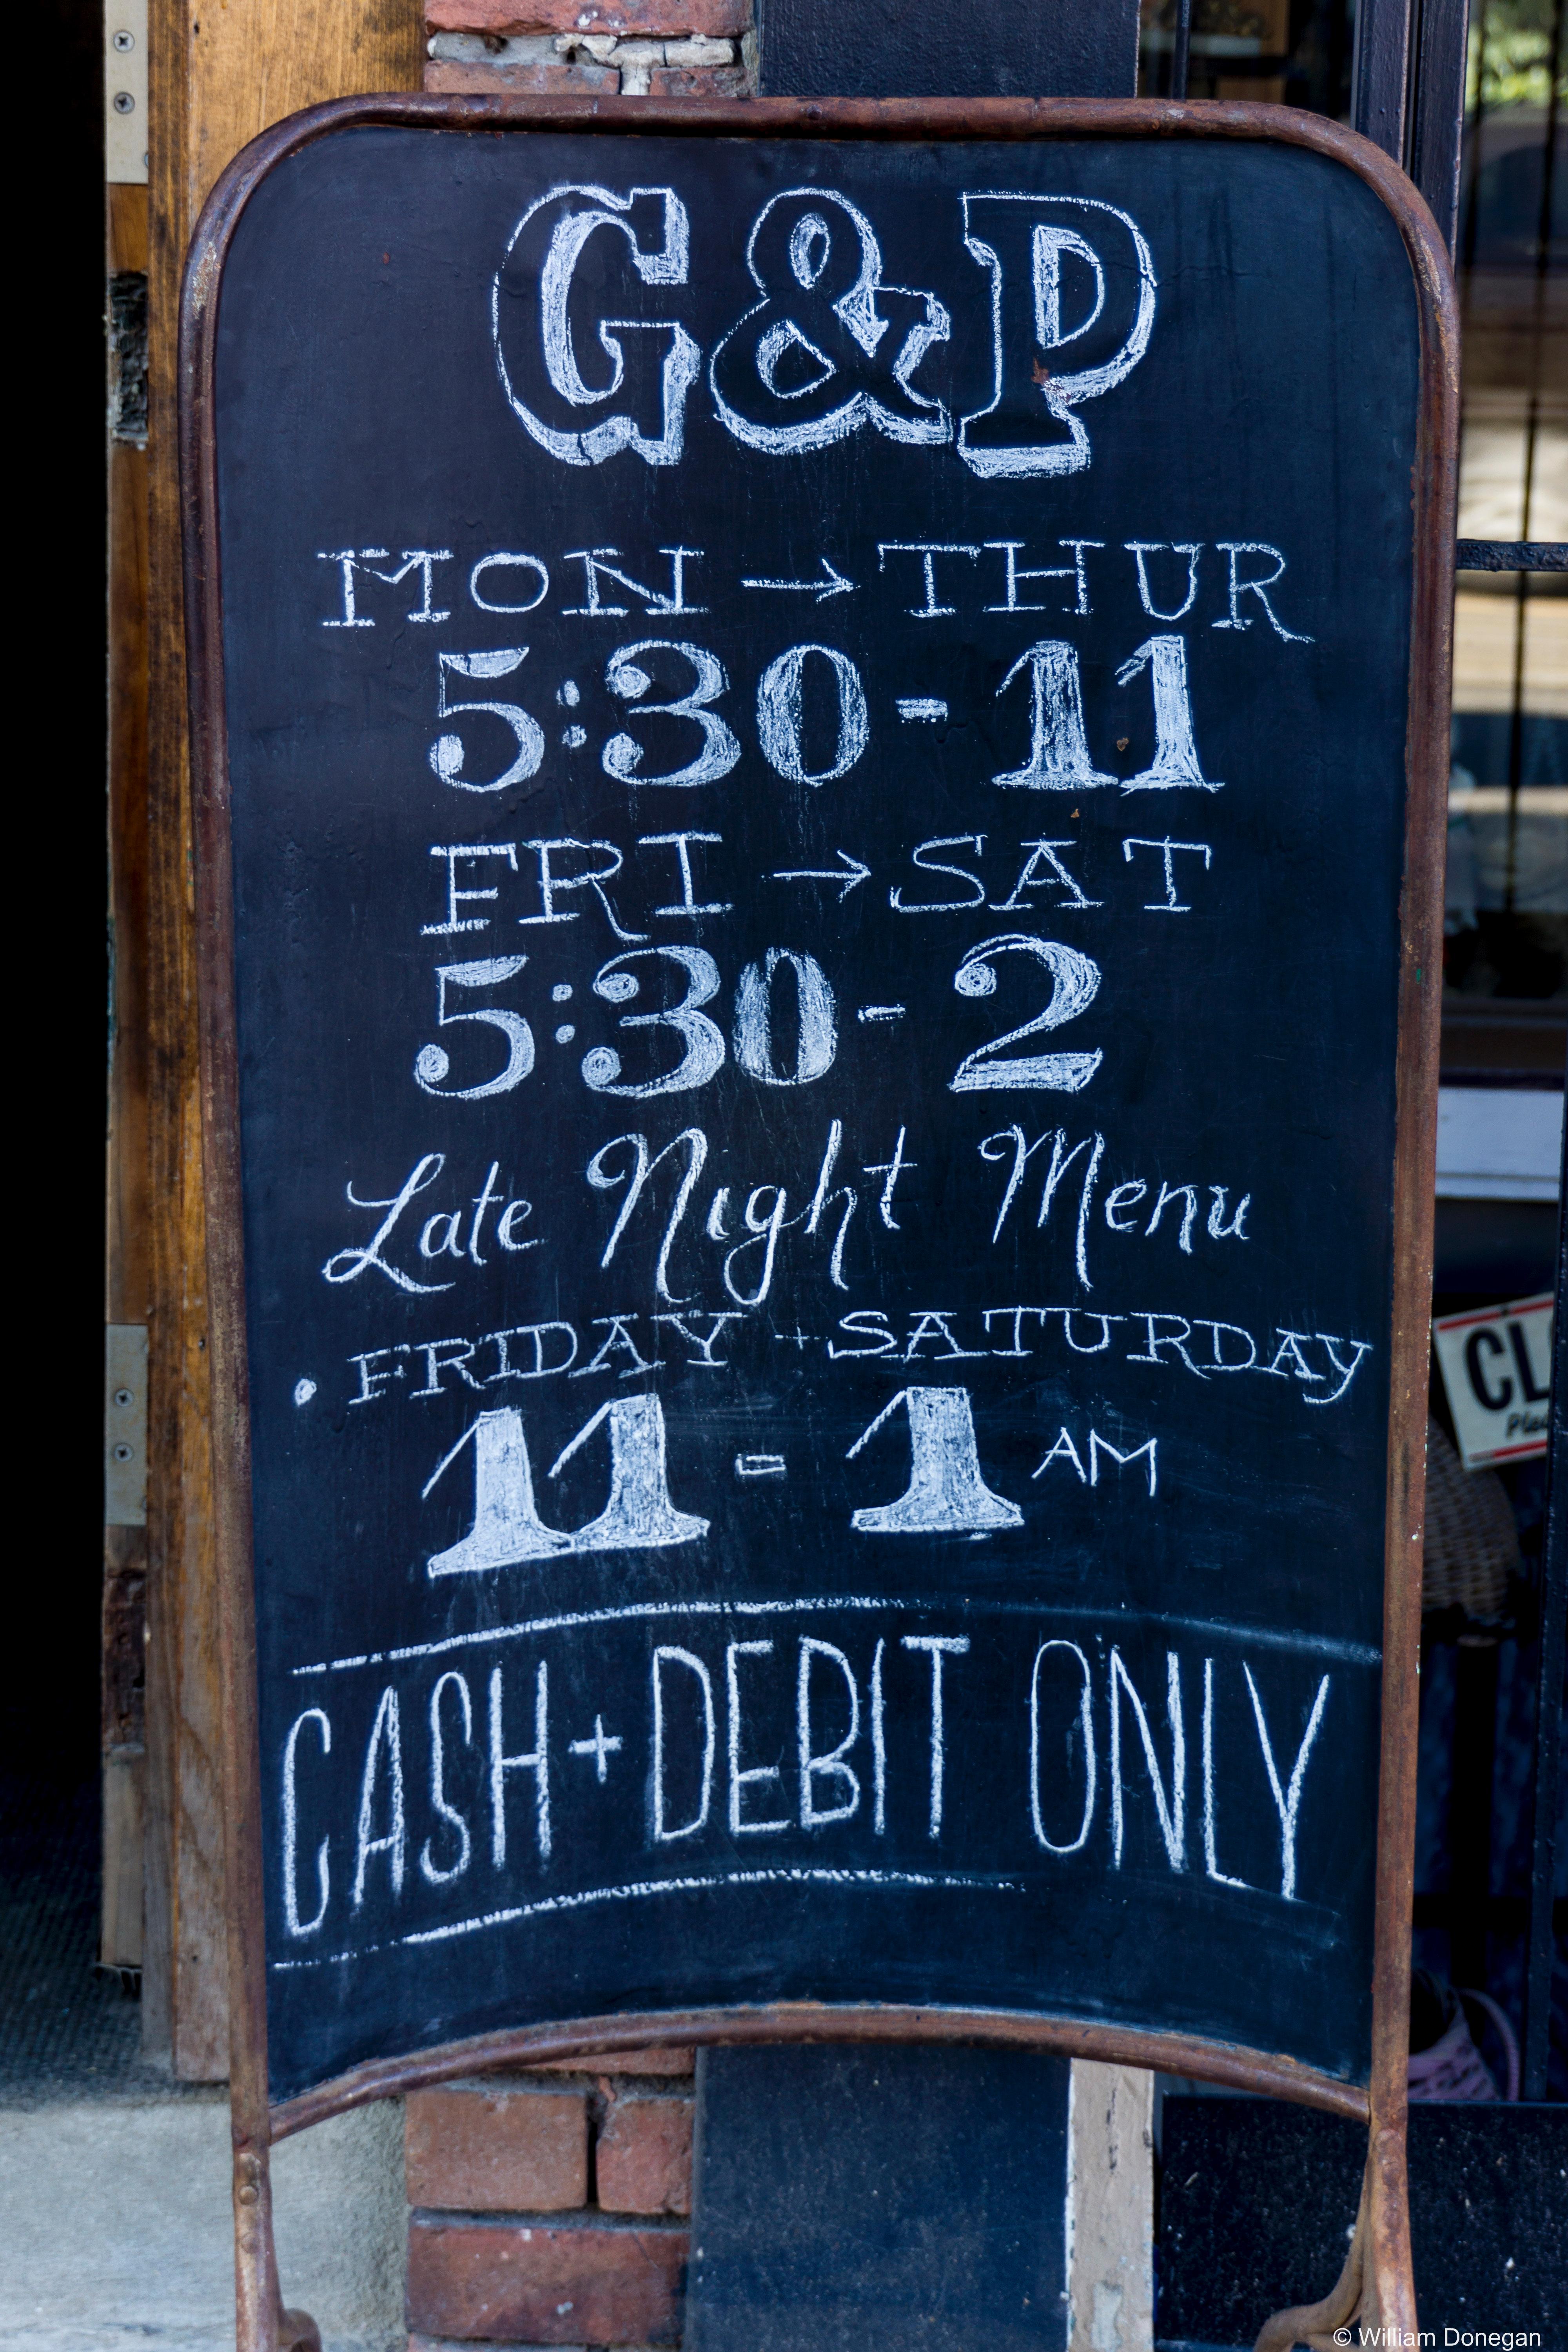 G&P
MON → THUR
5:30 - 11
FRI → SAT
5:30 - 2
Late Night Menu
• FRIDAY + SATURDAY
11 - 1 AM
CASH + DEBIT ONLY
CL
© William Donegan